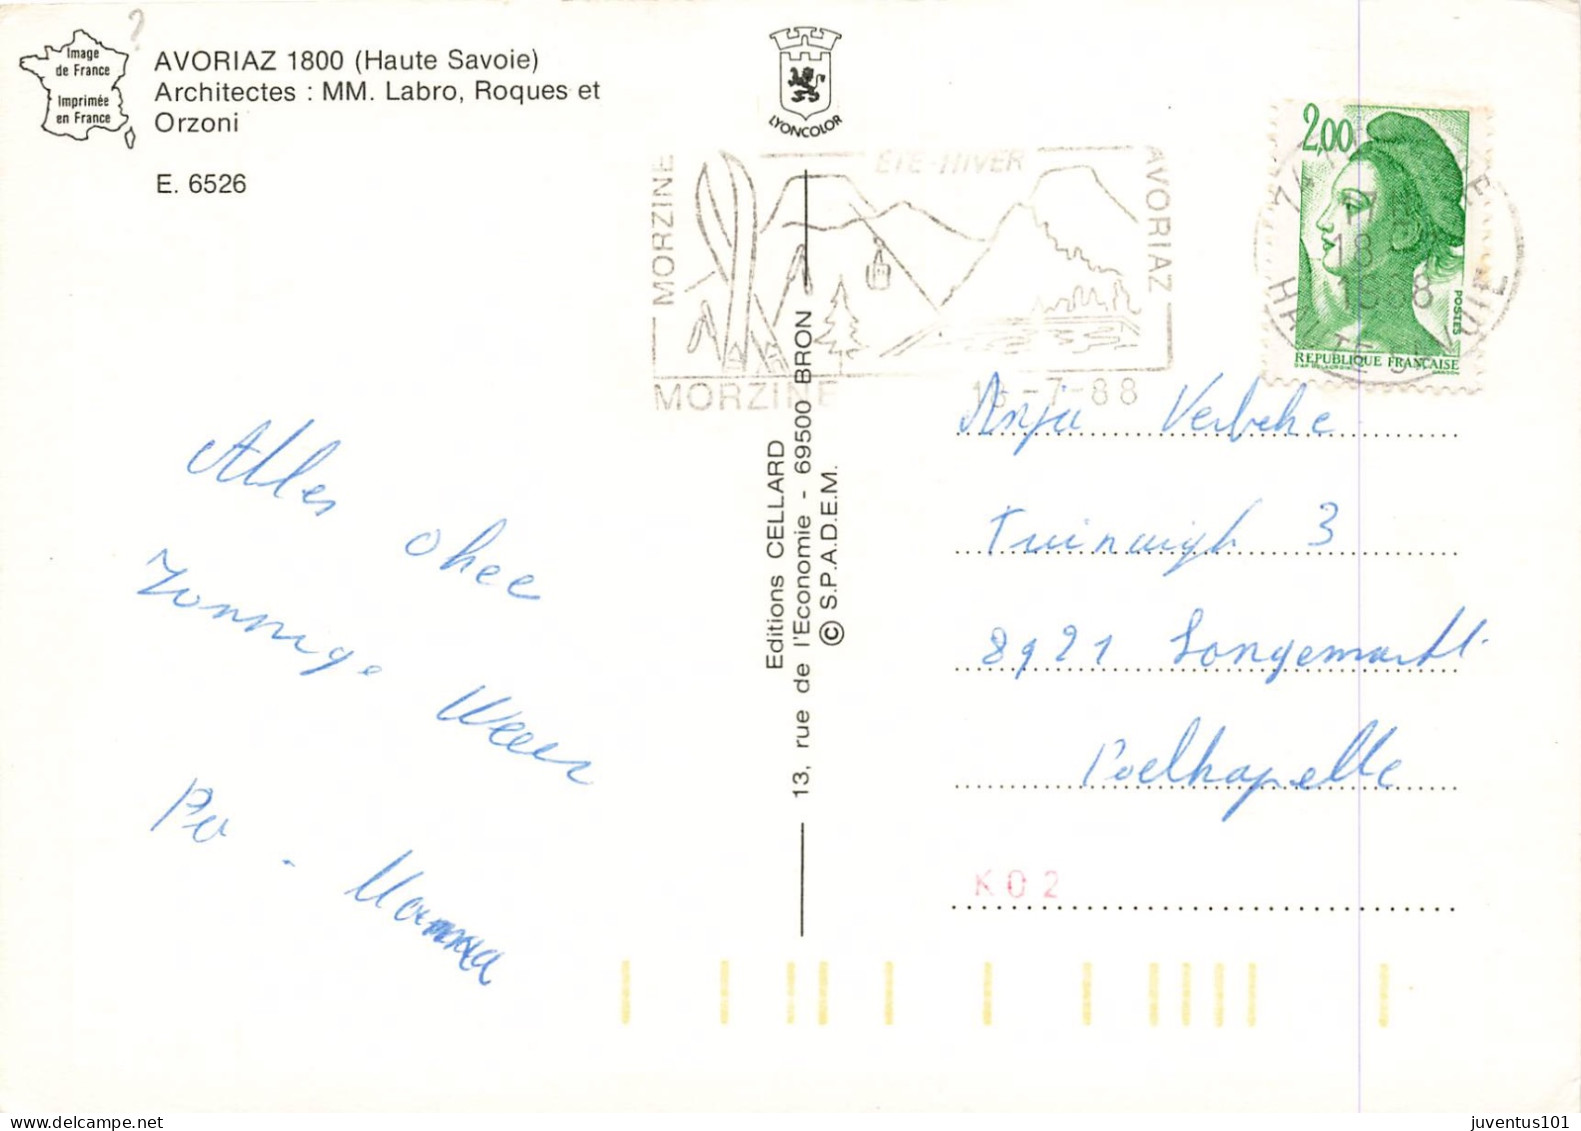 Image
de France
Imprimée
en France
AVORIAZ 1800 (Haute Savoie)
Architectes : MM. Labro, Roques et
Orzoni
E. 6526
LYONCOLOR
MORZINE
ETE-HIVER
AVORIAZ
MORZINE
-7-88
2,00
POSTES
REPUBLIQUE FRANÇAISE
18
1988
Editions CELLARD
13, rue de l'Economie - 69500 BRON
© S.P.A.D.E.M.
Alles okee
Zonnige
Weer
Pa - Mama
Anja Verbeke
Tuinwijk 3
8921 Langemark
Poelkapelle
K02
juventus101